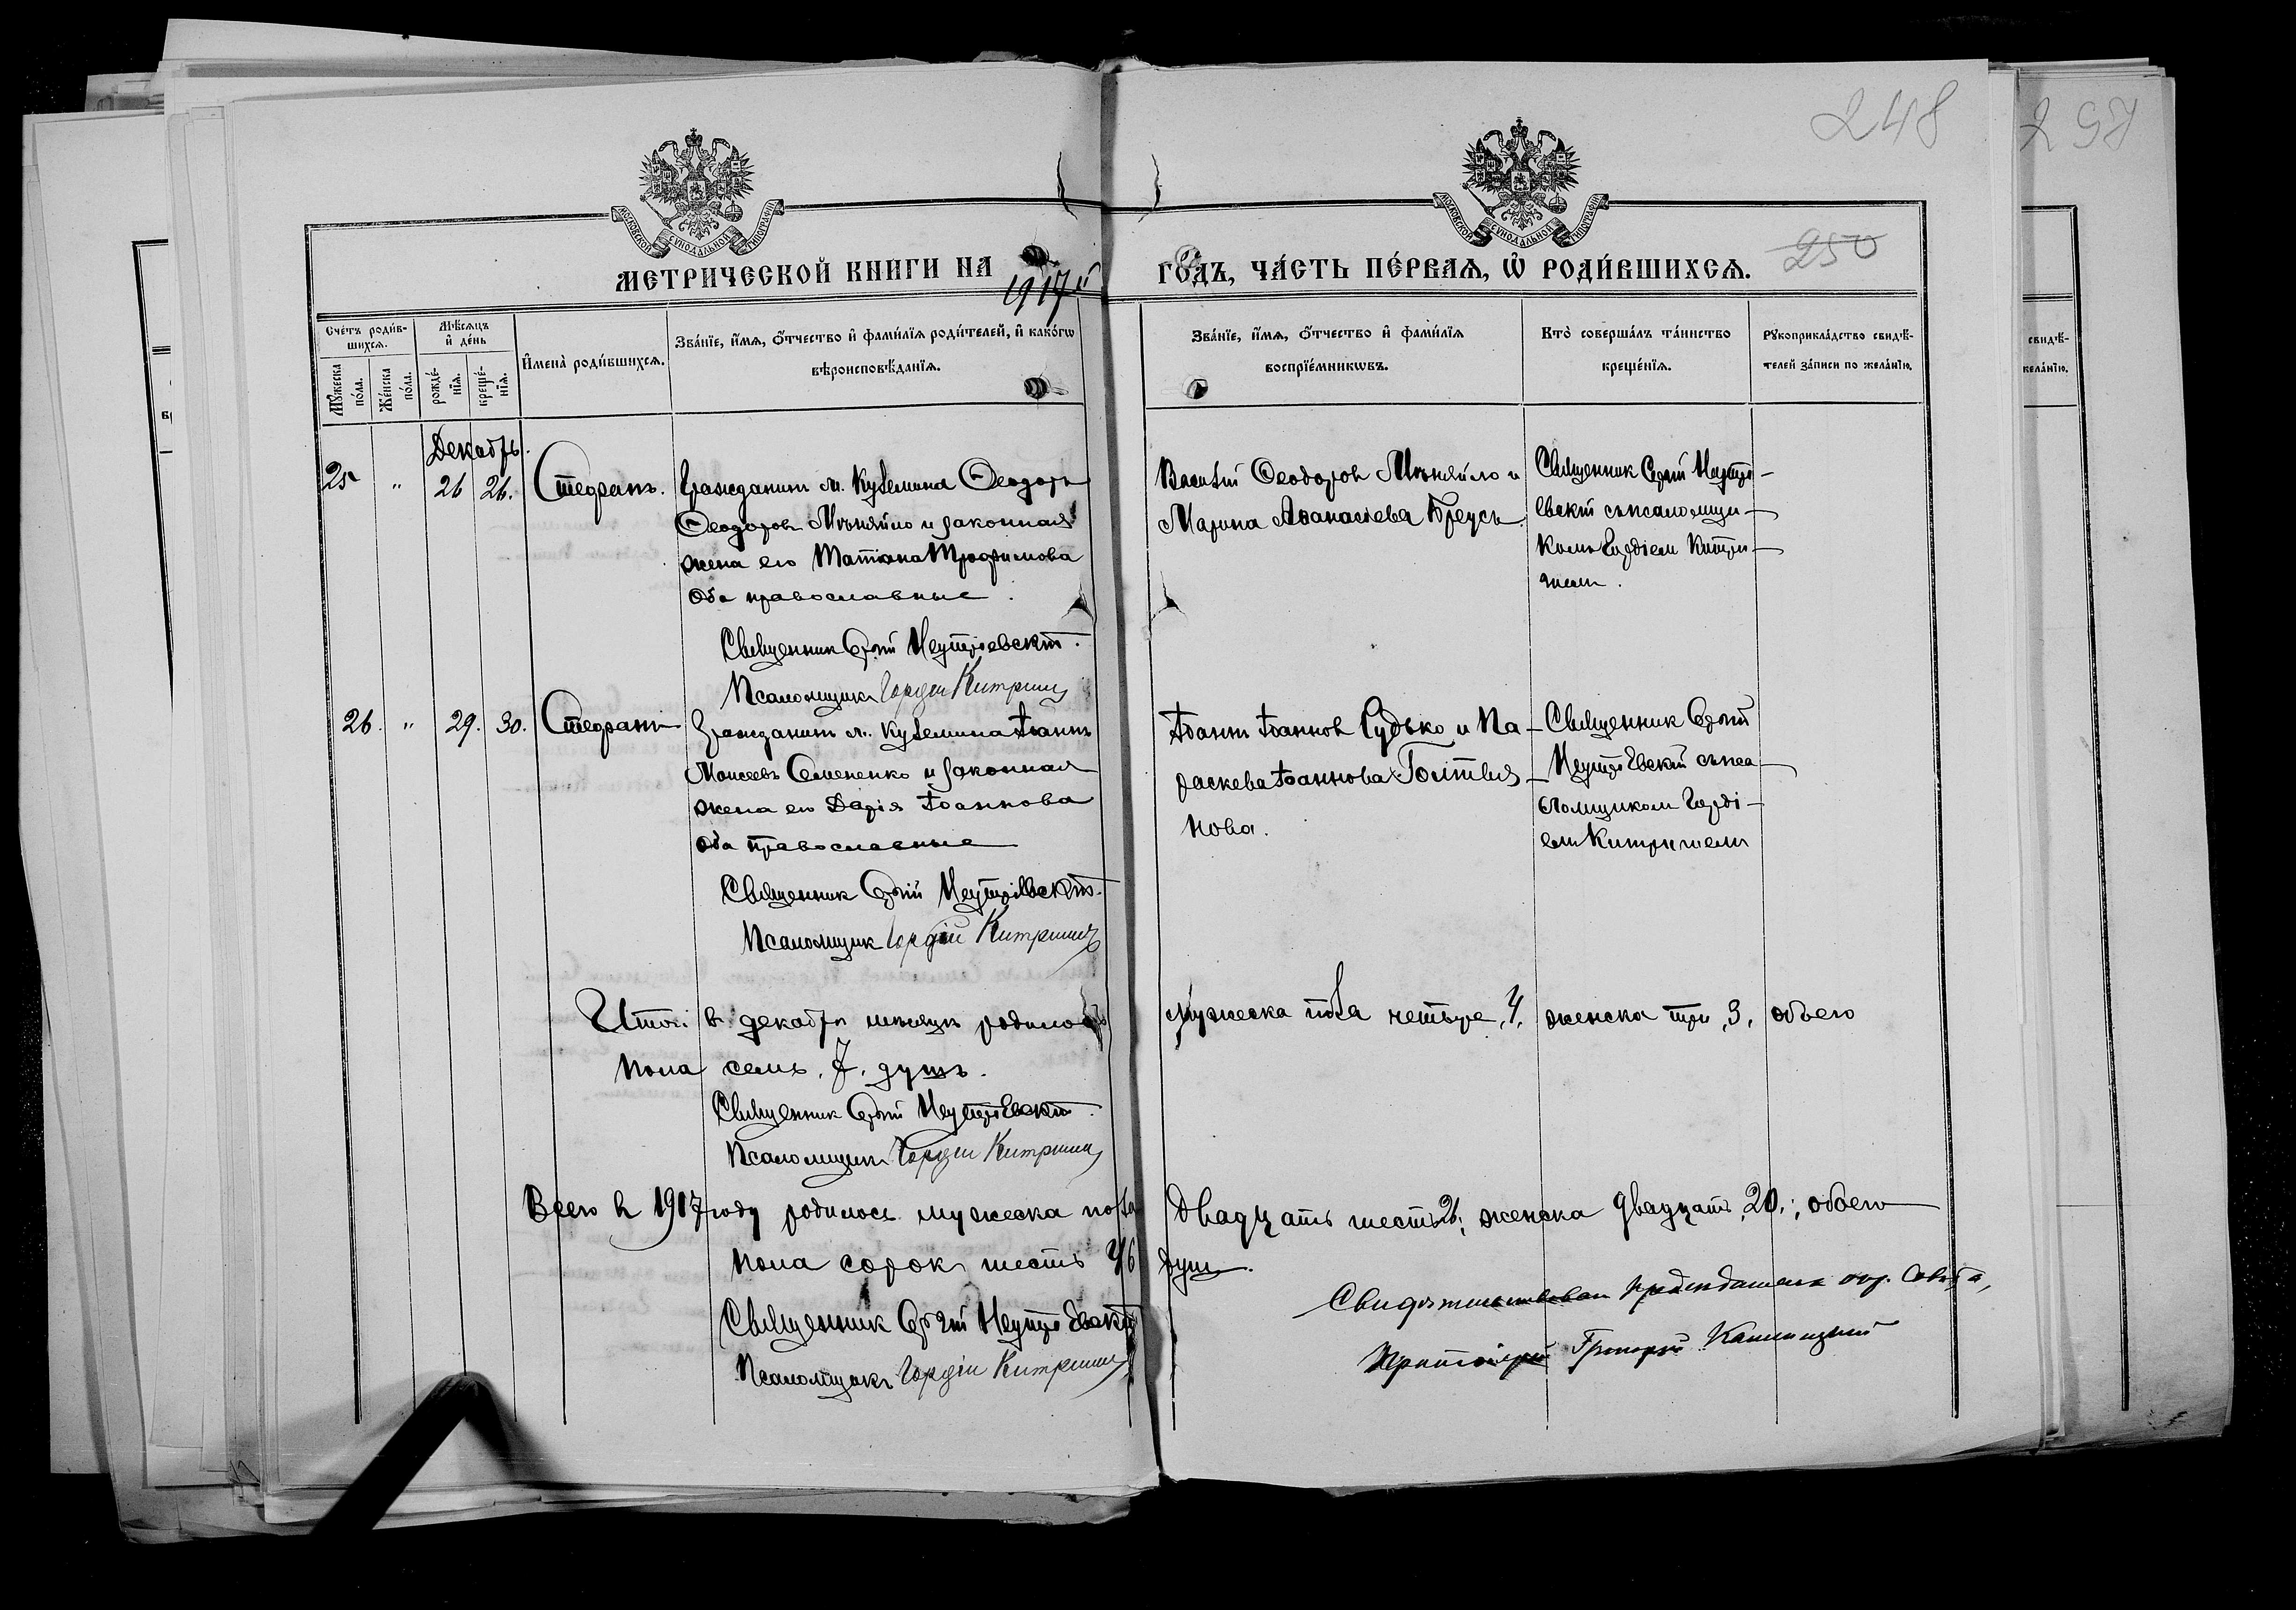 248
257
250
МОСКОВСКОЙ СѴНОДАЛЬНОЙ ТИПОГРАФІИ
МОСКОВСКОЙ СѴНОДАЛЬНОЙ ТИПОГРАФІИ
МЕТРИЧЕСКОЙ КНИ́ГИ НА 1917й ГО́ДЪ, ЧА́СТЬ ПЕ́РВАѦ, Ѡ҆ РОДИ́ВШИХСѦ.
Сче́тъ роди́в-
шихсѧ.
Мꙋ́жеска по́ла.
Же́нска по́ла.
Мѣ́сѧцъ и҆ де́нь
рожде́-
нїѧ.
креще́-
нїѧ.
И҆мена̀ роди́вшихсѧ.
Зва́нїе, и҆́мѧ, ѻ҆́тчество и҆ фами́лїѧ роди́телей, и҆ како́гѡ
вѣроисповѣ́данїѧ.
Зва́нїе, и҆́мѧ, ѻ҆́тчество и҆ фами́лїѧ
воспрїе́мникѡвъ.
Кто̀ соверша́лъ та́инство
креще́нїѧ.
Рꙋкоприкла́дство свидѣ́-
телей за́писи по жела́нїю.
свидѣ́-
жела́нїю.
Декабрь.
25 " 26 26. Стефанъ.
Гражданинъ м. Куземина Ѳеодоръ
Ѳеодоровъ Мѣняйло и законная
жена его Татіана Трофимова
Оба православные.
Священникъ Сергій
Псаломщикъ Гордій Китришъ
Василій Ѳеодоровъ Мѣняйло и
Марина Аѳанасіева Бреусъ.
Священникъ Сергій
евскій съ псаломщи-
комъ Гордіемъ Китри-
шемъ.
26. " 29. 30. Стефанъ
Гражданинъ м. Куземина Іоаннъ
Моисеевъ Семененко и законная
жена его Дарія Іоаннова
Оба православные
Священникъ Сергій
Псаломщикъ Гордій Китришъ
Іоаннъ Іоанновъ Гудько и Па-
раскева Іоаннова
нова.
Священникъ Сергій
съ пса-
ломщикомъ Горді-
емъ Китришемъ
Итого въ декабрѣ мѣсяцѣ родилось мужеска пола четыре, 4, женска три, 3, обоего
пола семь, 7, душъ.
Священникъ Сергій
Псаломщикъ Гордій Китришъ
Всего въ 1917 году родилось мужеска пола двадцать шесть 26; женска двадцать, 20,; обоего
пола сорокъ шесть 46 душъ.
Священникъ Сергій
Псаломщикъ Гордій Китришъ
Свидѣтельствовалъ Предсѣдатель окр. Совѣта,
Протоіерей Григорій